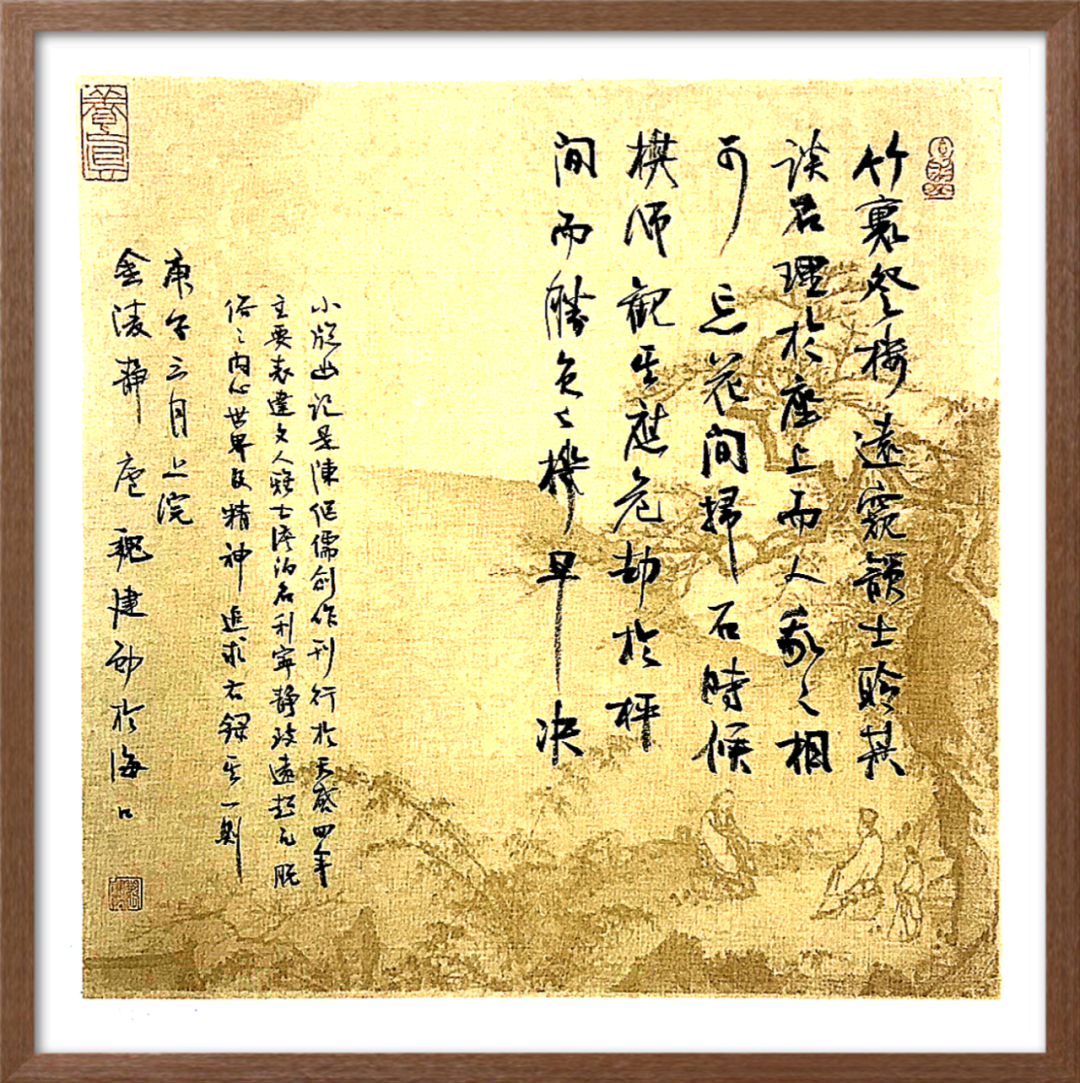 竹裏登樓遠窺韻士聆其
談名理於座上而人我之相
可忘花間掃石時候
棋師觀其應危劫於枰
間而勝負之機早決
小牕幽記是陳繼儒創作刊行於天啟四年
主要表達文人雅士淡泊名利寧靜致遠超凡脫
俗之內心世界及精神追求右錄其一則
庚子三月上浣
金陵靜廬魏建於海口